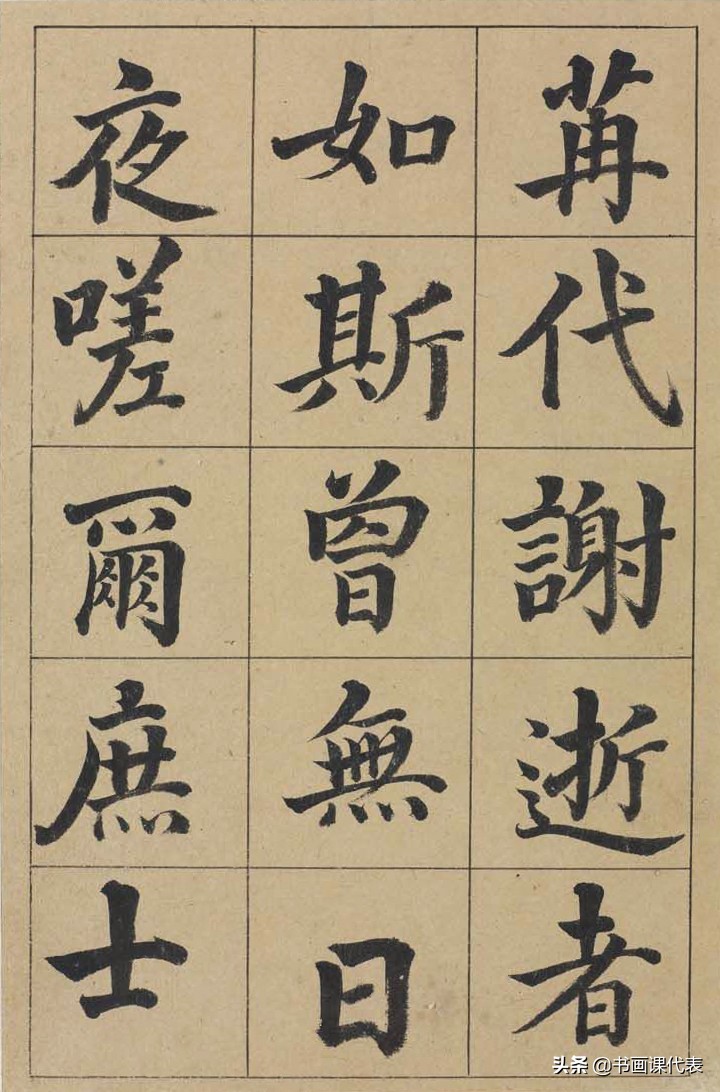 苒代謝逝者
如斯曾無日
夜嗟爾庶士
头条 @书画课代表